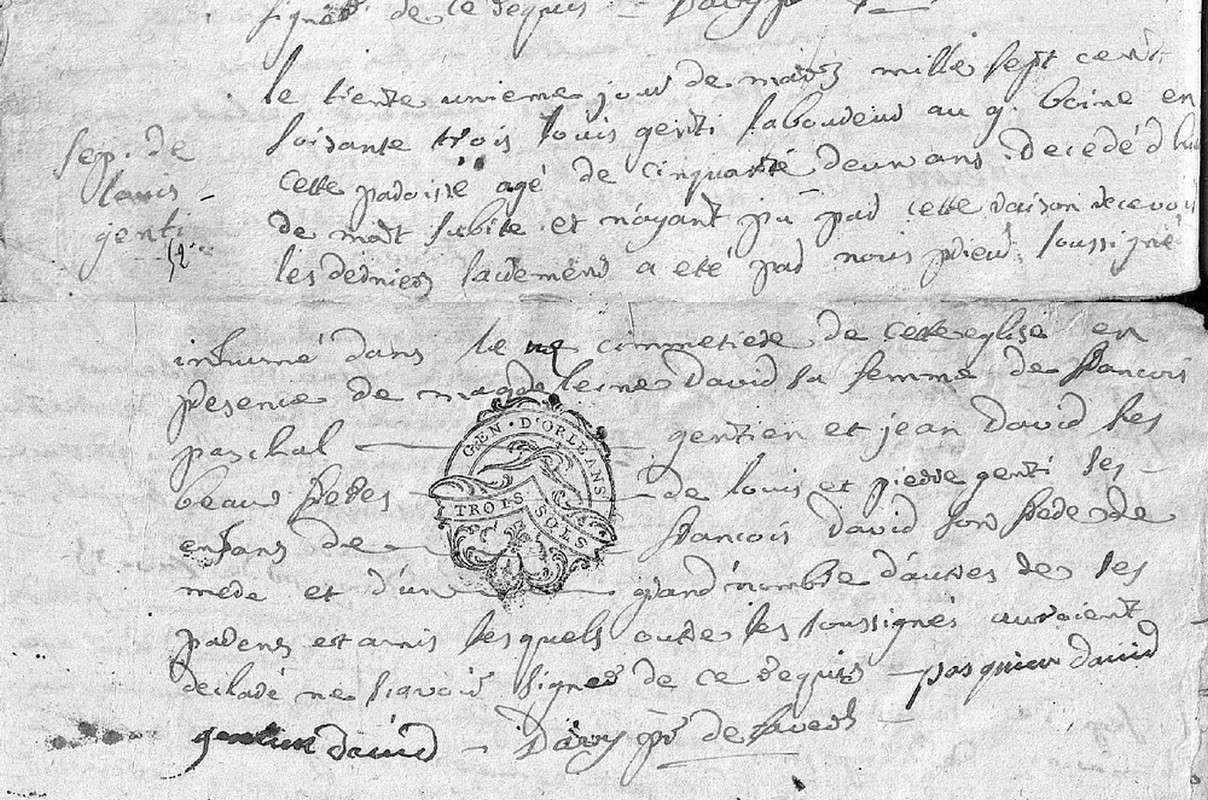 signer de ce requis
le trente unieme jour de mars mille sept cent
soisante trois louis genti laboureur au g. boine en
sep. de
cette paroisse agé de cinquante deux ans decedé d'hier
louis
de mort subite et n'ayant pu par cette raison recevoir
genti
52
les derniers sacremens a eté par nous prieur soussigné
inhumé dans le cimmetiere de cette eglise en
presence de magdeleine david sa femme de francois
paschal gentien et jean david ses
beaux freres de louis et pierre genti ses
enfans de francois david son frere de
mere et d'un grand nombre d'autres de ses
parens et amis lesquels outre les soussignés auroient
declaré ne sçavoir signer de ce requis pasquier david
gentien david Davy pr de
GEN. D'ORLEANS
TROIS SOLS